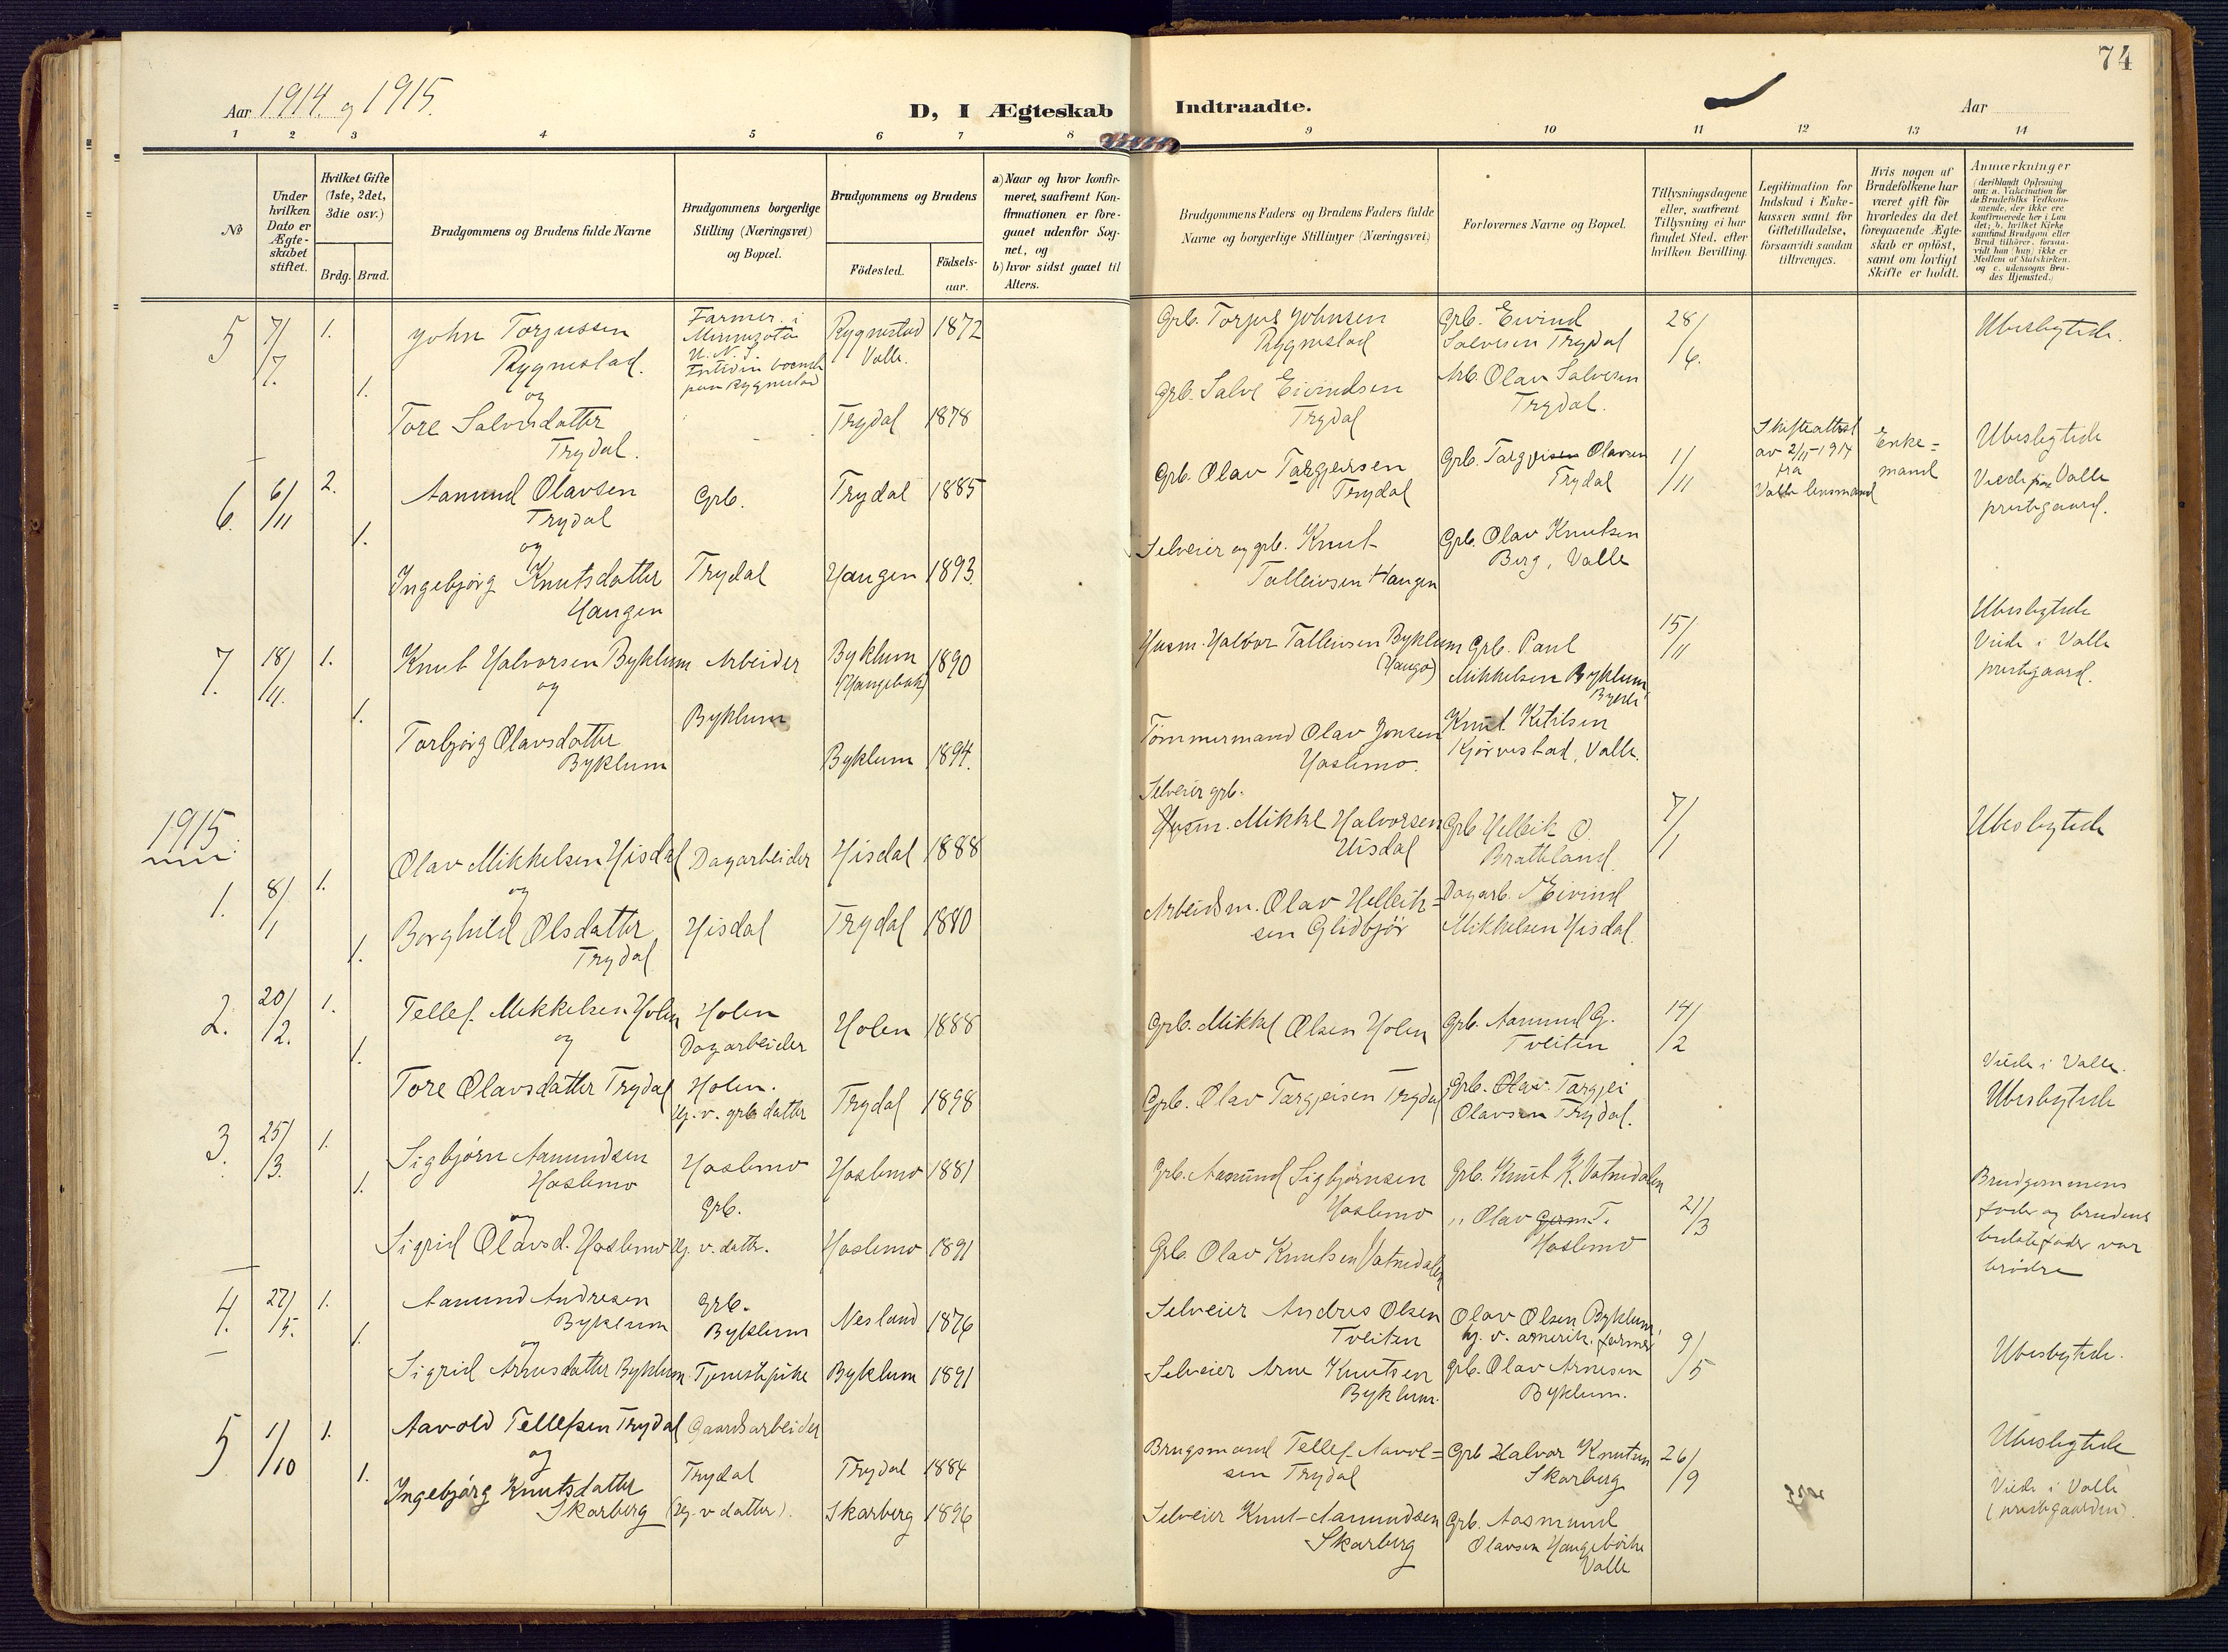 74
Aar 1914. og 1915.
D, I Ægteskab Indtraadte.
Aar
1 2 3 4 5 6 7 8 9 10 11 12 13 14
No
Under hvilken Dato er Ægteskabet stiftet.
Hvilket Gifte (1ste, 2det, 3die osv.)
Brdg. Brud.
Brudgommens og Brudens fulde Navne
Brudgommens borgerlige Stilling (Næringsvei) og Bopæl.
Brudgommens og Brudens
Födested.
Födselsaar.
a) Naar og hvor konfirmeret, saafremt Konfirmationen er foregaaet udenfor Sognet, og
b) hvor sidst gaaet til Alters.
Brudgommens Faders og Brudens Faders fulde Navne og borgerlige Stillinger (Næringsvei)
Forlovernes Navne og Bopæl.
Tillysningsdagene eller, saafremt Tillysning ei har fundet Sted, efter hvilken Bevilling.
Legitimation for Indskud i Enkekassen samt for Giftetilladelse, forsaavidt saadan tiltrænges.
Hvis nogen af Brudefolkene har været gift för hvorledes da det foregaaende Ægteskab er oplöst, samt om lovligt Skifte er holdt.
Anmærkninger
(deriblandt Oplysning om: a. Vakcination for de Brudefolks Vedkommende, der ikke ere konfirmerede her i Landet; b. hvilket Kirkesamfund Brudgom eller Brud tilhörer, forsaavidt han (hun) ikke er Medlem af Statskirken, og c. udensogns Brudes Hjemsted.)
5 7/7. 1.
John Torjussen
Rygnestad.
og
1.
Tore Salvesdatter
Trydal.
Farmer i
Minnesota
U. N. S.
Fortiden boende
paa Rygnestad
Rygnestad
Valle.
1872
Trydal 1878
Grb. Torjus Johnsen
Rygnestad
Grb. Salve Eivindsen
Trydal
Grb. Eivind
Salvesen Trydal
Arb. Olav Salvesen
Trydal.
28/6.
Ubeslegtede.
6. 6/11 2.
Aamund Olavsen
Trydal
og
1.
Ingebjörg Knutsdatter
Haugen
Grb.
Trydal
Trydal 1885
Haugen 1893.
Grb. Olav Targjeisen
Trydal
Selveier og grb. Knut
Talleivsen Haugen
Grb. Targjei Olavsen
Trydal
Grb. Olav Knutsen
Berg, Valle
1/11
Skifteattest
av 2/11-1914
fra
Valle lensmand
Enke=
mand
Ubeslegtede
Viede paa Valle
prestegaard.
7. 18/11. 1.
Knut Halvorsen Byklum
og
1.
Torbjörg Olavsdatter
Byklum
Arbeider
Byklum
Byklum
1890
Byklum 1894.
Husm. Halvor Talleivsen Byklum
Tömmermand Olav Jonsen
Hoslemo.
Grb. Paul
Mikkelsen Byklum
Knut Ketilsen
Kjörvestad, Valle.
15/11
Ubeslegtede
Viede i Valle
prestgaard.
1915
1. 8/1 1.
Olav Mikkelsen Hisdal
og
1.
Borghild Olsdatter
Trydal
Dagarbeider
Hisdal
Hisdal 1888
Trydal 1880
Selveier grb.
Husm. Mikkel Halvorsen
Hisdal
Arbeidsm. Olav Helleik=
sen Glidbjör
Grb Helleik O.
Bratteland.
Dagarb. Eivind
Mikkelsen Hisdal.
7/1
Ubeslegtede
2. 20/2. 1.
Tellef. Mikkelsen Holen
og
1.
Tore Olavsdatter Trydal
Holen
Dagarbeider
Holen.
Hj. v. grb datter
Holen 1888
Trydal 1898
Grb. Mikkel Olsen Holen
Grb. Olav Targjeisen Trydal
Grb. Aamund G.
Tveiten
Grb. Olav. Targjei
Olavsen Trydal.
14/2
Viede i Valle.
Ubeslegtede
3. 25/3. 1.
Sigbjörn Aamundsen
Hoslemo
og
1.
Sigrid Olavsd. Hoslemo
Hoslemo
Grb.
Hj. v. dattr.
Hoslemo 1881
Hoslemo 1891
Grb. Aasmund Sigbjörnsen
Hoslemo
Grb. Olav Knutsen Vatnedalen
Grb. Knut K. Vatnedalen
" Olav T.
Hoslemo
21/3
Brudgommens
fader og brudens
fader var
brödre
4. 27/5. 1.
Aamund Andresen
Byklum
og
1.
Sigrid Arnesdatter Byklum
Grb.
Byklum
Tjenestepike
Nesland 1876
Byklum 1891
Selveier Andres Olsen
Tveiten
Selveier Arne Knutsen
Byklum.
Olav Olsen Byklum,
hj. v. amerik. farmer
grb. Olav Arnesen
Byklum.
9/5
Ubeslegtede.
5 1/10 1.
Aavold Tellefsen Trydal
og
1.
Ingebjörg Knutsdatter
Skarberg
Gaardsarbeider
Trydal
(hj. v datter).
Trydal 1884
Skarberg 1896
Brugsmand Tellef Aavol=
sen Trydal
Selveier Knut Aamundsen
Skarberg
Grb Halvor Knutsen
Skarberg
Grb. Aasmund
Olavsen
Valle
26/9
Ubeslegtede
Viede i Valle
(prestegaarden).